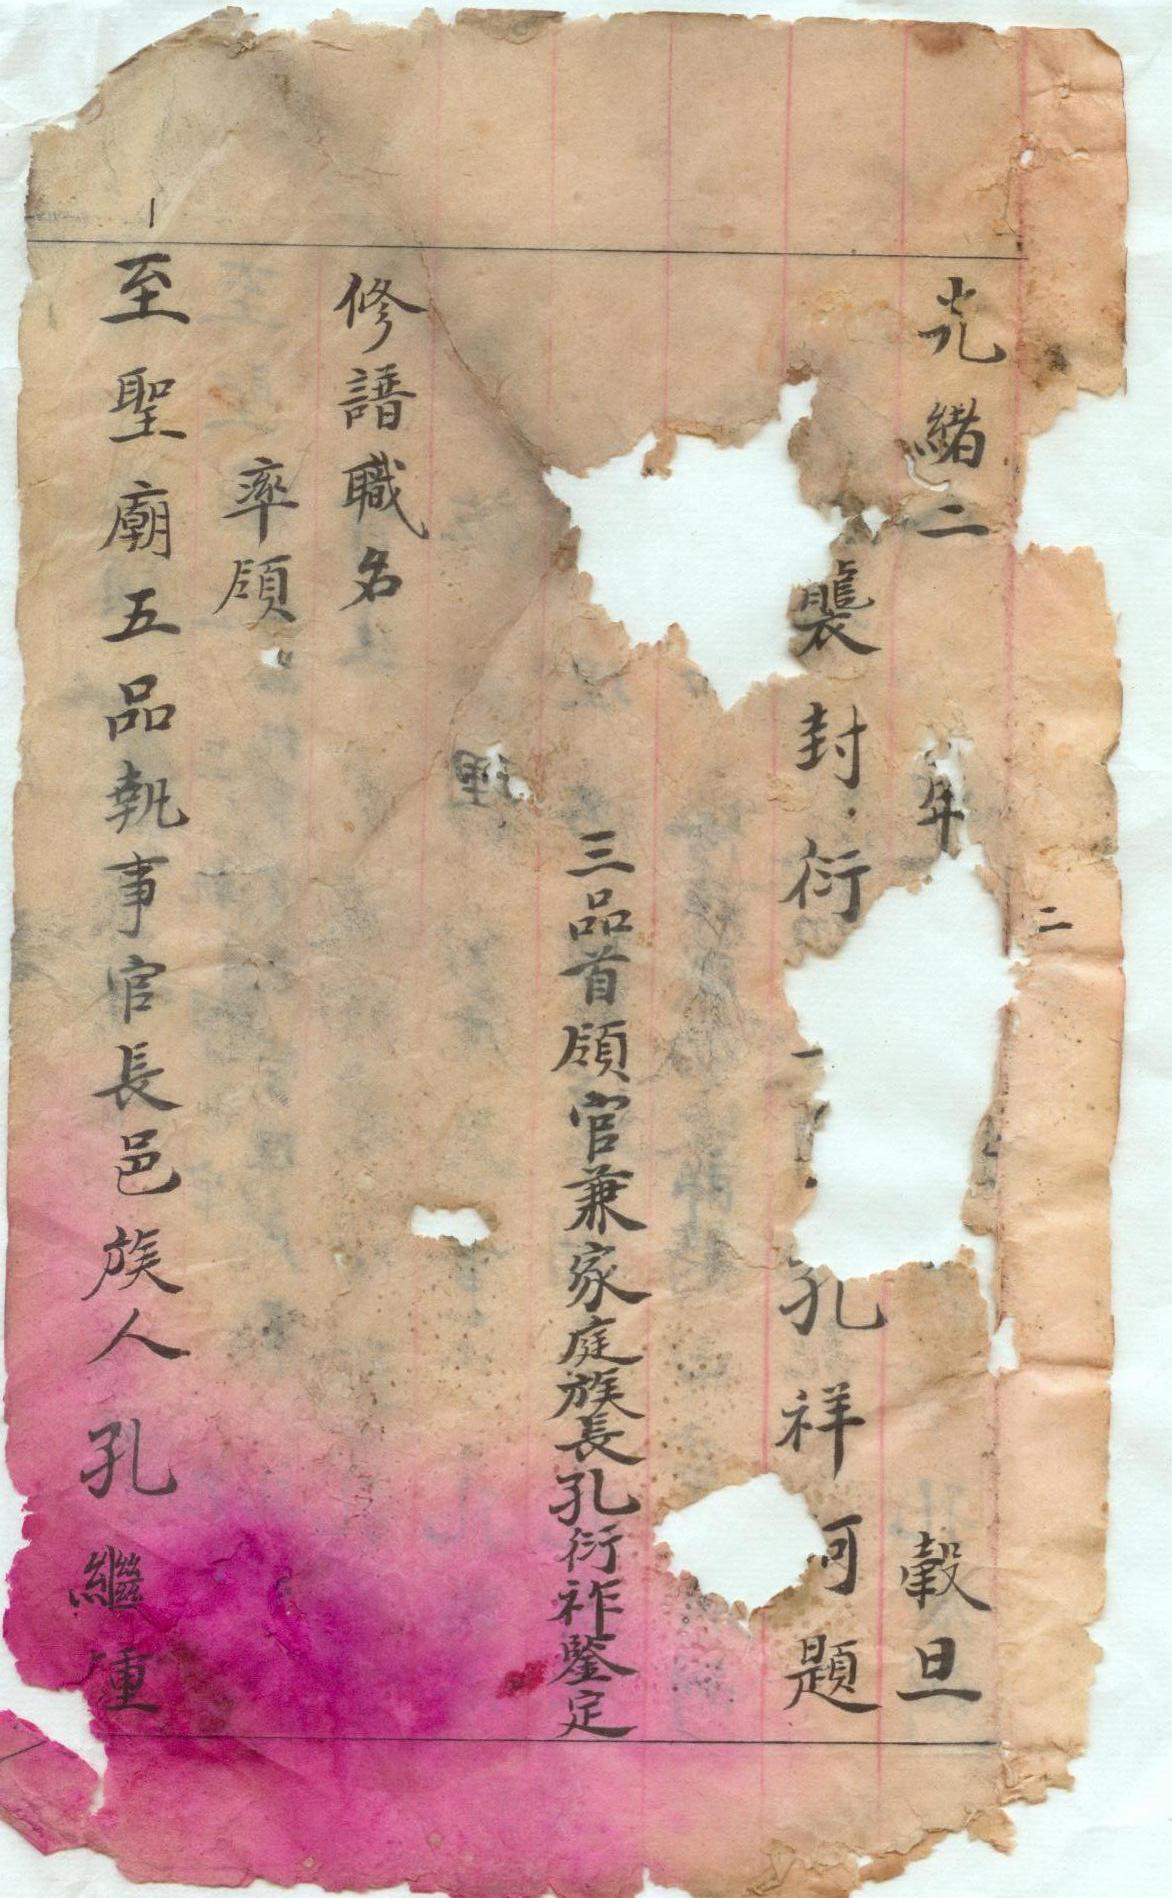 二
光緒二 年 穀旦
襲封衍 孔祥珂題
三品首領官兼家庭族長孔衍祚鑒定
修譜職名
率領
至聖廟五品執事官長邑族人孔繼重